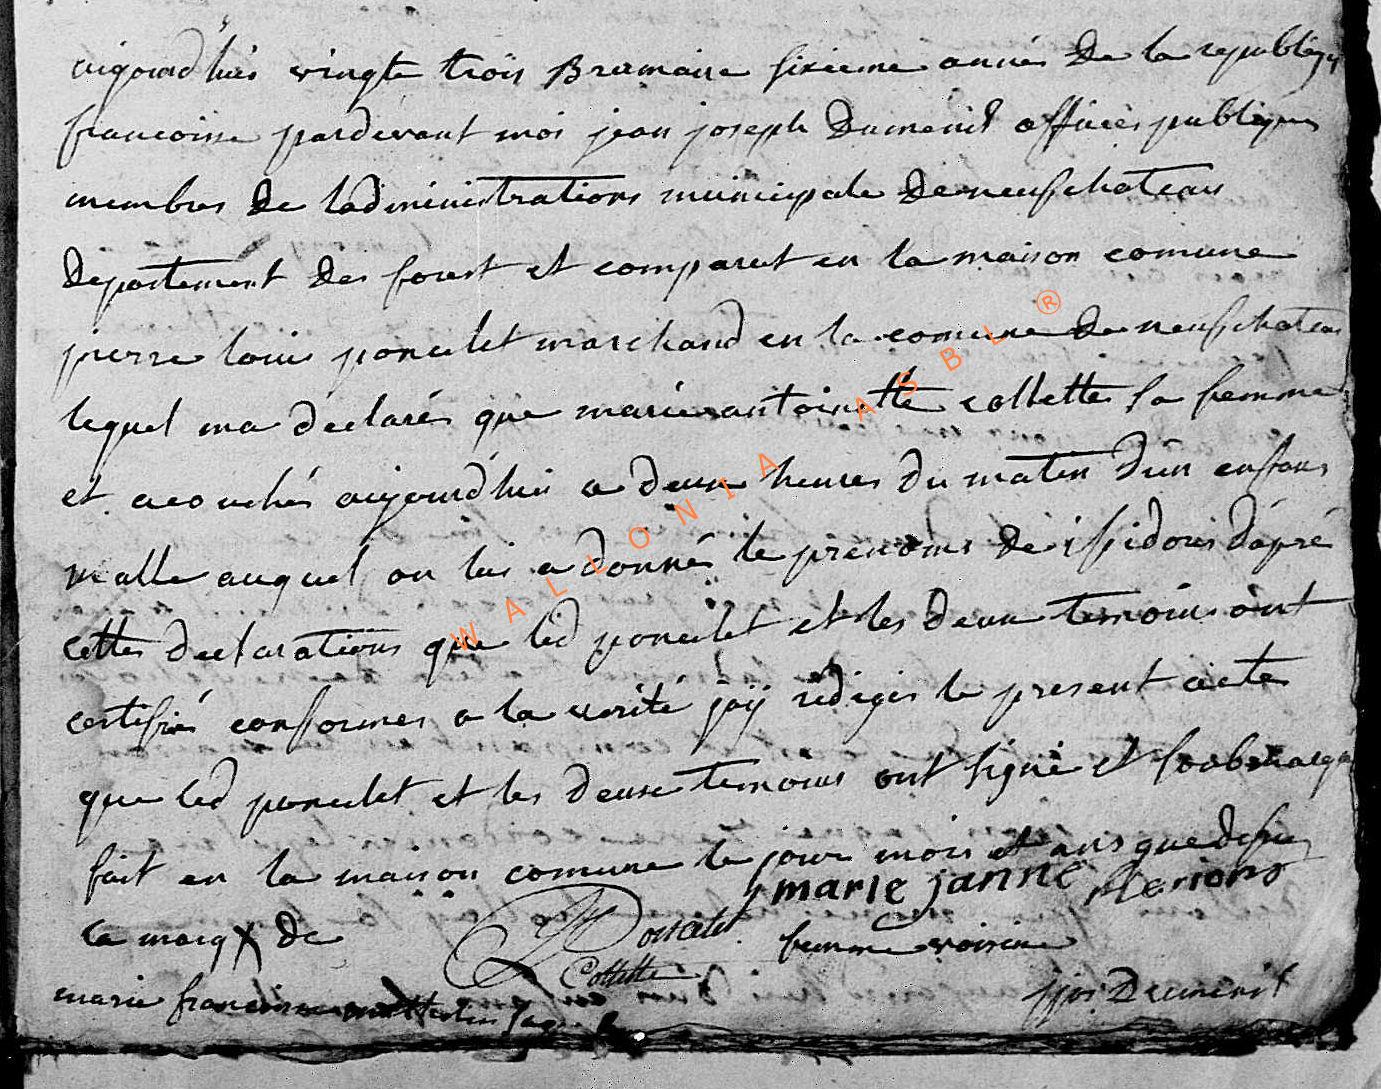 aujourd'huis vingte trois Brumaire sixieme année de la republiq
francoise pardevant moi jean joseph Dumenil officiés publiques
membres de ladministrations municipale de neufchateau
département des forest et comparut en la maison comune
pierre louis poncelet marchand en la comune de neufchateau
lequel ma déclarés que marie antoinette collette sa femme
et acouchés aujourd'hui a deux heures du matin d'un enfans
malle auquel on lui a donnés le prenoms de issidore d'apré
cettes declarations que led poncelet et les deux temoins ont
certifiés conformes a la verité jaÿ rédiges le present acte
que led poncelet et les deuxe temoins ont signé et soubmarq
fait en la maison comune le jour mois et ans que dessus
marie janne
la marq X de Poncelet femme voisine
Collette
marie francoise jjos Dumenil
WALLONIA ASBL ®